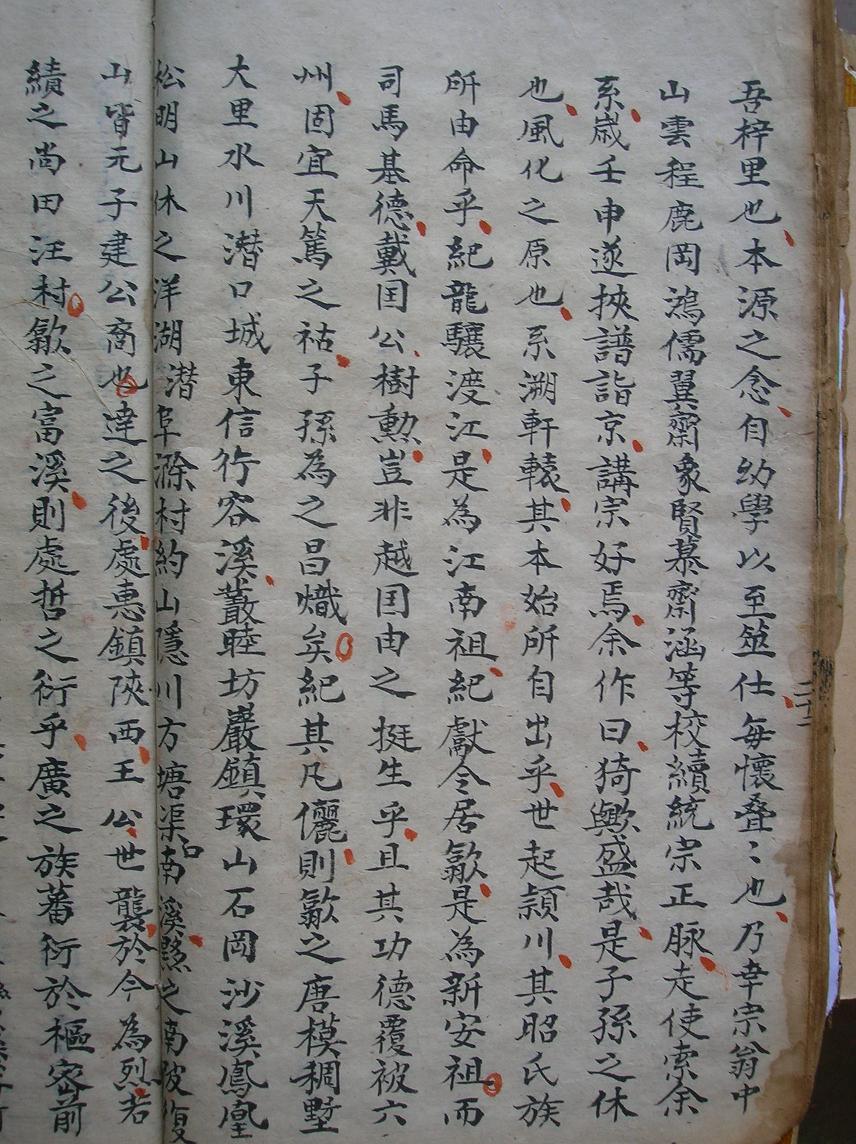 吾梓里也本源之念自幼學以至筮仕每懷叠〻也乃幸宗翁中
山雲程鹿岡鴻儒翼齋象賢慕齋涵等校續統宗正脉走使索余
系嵗壬申遂挾譜詣京講宗好焉余作曰猗歟盛哉是子孫之休
也風化之原也系溯軒轅其本始所自出乎世起潁川其昭氏族
所由命乎紀龍驤渡江是為江南祖紀獻令居歙是為新安祖而
司馬基德戴囯公樹勲豈非越囯由之挺生乎且其功德覆被六
州固宜天篤之祜子孫為之昌熾矣紀其凡儷則歙之唐模稠墅
大里水川潛口城東信行容溪叢睦坊巖鎮環山石岡沙溪鳳凰
松明山休之洋湖潛阜滁村約山隱川方塘渠口南溪黟之南陂復
山皆元子建公裔也達之後處惠鎮陝西王公世襲於今為烈若
績之尚田汪村歙之富溪則處哲之衍乎廣之族蕃衍於樞密前